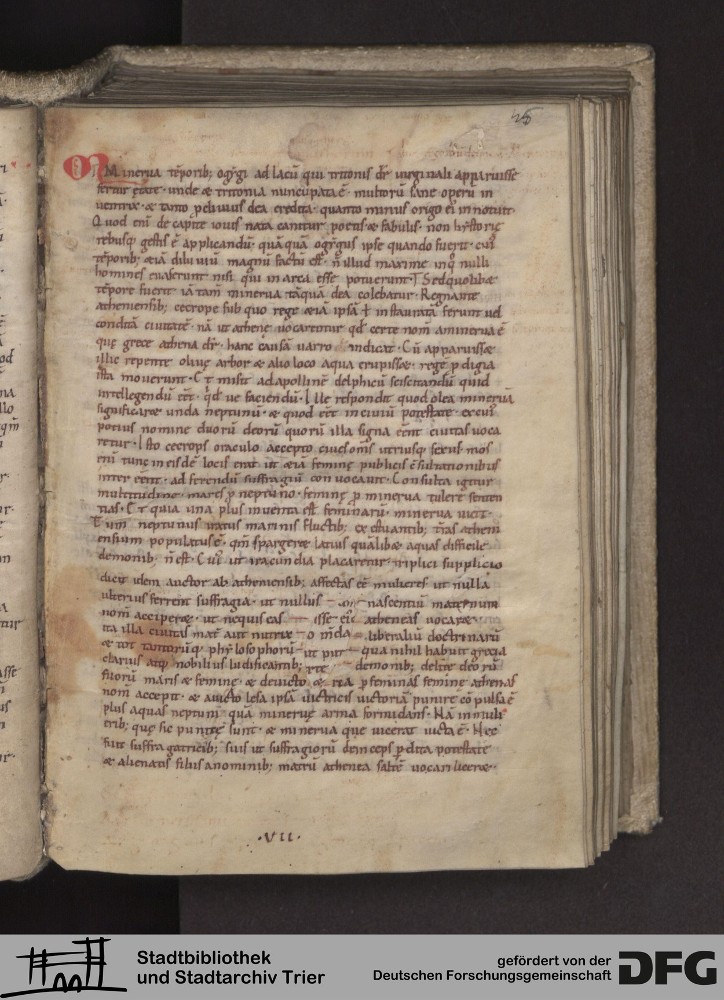 Minerua tēporib; ogygi ad lacū qui tritonis dr̄ uirginali apparuisse
fertur ętate · unde & tritonia nuncupata ē · multorū sane operū in
uentrix · & tanto ꝓcliuius dea credita · quanto minus origo ei innotuit
Quod enī de capite iouis nata canitur poetis & fabulis · non hystorię
rebusq; gestis ē applicandū · quāquā ogygus ipse quando fuerit · cuī
tēporib; &iā diluuiū magnū factū est · ñ illud maximę inq° nulli
homines euaserunt nisi qui in arca esse potuerunt · Sed quolib&
tēpore fuerit iā tam̄ minerua tāquā dea colebatur · Regnante
atheniensib; cecrope sub quo rege &iā ipsā ƚ instauratā ferunt uel
conditā ciuitatē · nā ut athenę uocarentur qđ certe nom̄ a minerua ē
quę grece athena dr̄ · hanc causā uarro indicat · Cū apparuiss&
illic repente oliuę arbor & alio loco aqua erupiss& · regē ꝓdigia
ista mouerunt · Et misit ad apollinē delphicū sciscitandū quid
intellegendū eēt · qđ ue faciendū · Ille respondit quod olea mineruā
significar& unda neptunū · & quod eēt in ciuiū potestate · ex cui
potius nomine duorū deorū quorū illa signa eēnt ciuitas uoca
retur · Isto cecrops oraculo accepto ciues om̄s utriusq; sexus mos
enī tunc in eisdē locis erat ut &iā feminę publicis c̄sultationibus
inter eēnt · ad ferendū suffragiū conuocauit · Consulta igitur
multitudine · mares ꝓ neptuno · feminę ꝓ minerua tulere senten
tias · Et quia una plus inuenta est feminarū · minerua uicit ·
Tum neptunus iratus marinis fluctib; exestuantib; t̄ras atheni
ensium populatus ē · qm̄ sparger& latius qualib& aquas difficile
demonib; ñ est · Cuī ut iracundia placaretur · triplici supplicio
dicit idem auctor ab atheniensib; affectas eē mulieres ut nulla
ulterius ferrent suffragia · ut nullus nascentiū maternum
nom̄ acciper& · ut nequis eas atheneas uocar&
ita illa ciuitas mat̄ aut nutrix liberaliū doctrinarū
& tot tantorūq; phylosophorū qua nihil habuit grecia
clarius atq; nobilius ludificantib; demonib; de lite deorū
suorū maris & feminę · & deuicto ꝑ feminas feminę athenas
nom̄ accepit · & a uicto lesa ipsā uictricis uictoriā punire cōpulsa ē
plus aquas neptuni quā mineruę arma formidans · Nā in muli
erib; quę sic punitę sunt · & minerua que uicerat uicta ē · Nec
fuit suffragatricib; suis ut suffragiorū deinceps ꝑdita potestate
& alienatis filiis a nominib; matrū athenea saltē uocari licer& ·
·VII·
Stadtbibliothek
und Stadtarchiv Trier
gefördert von der
Deutschen Forschungsgemeinschaft
DFG